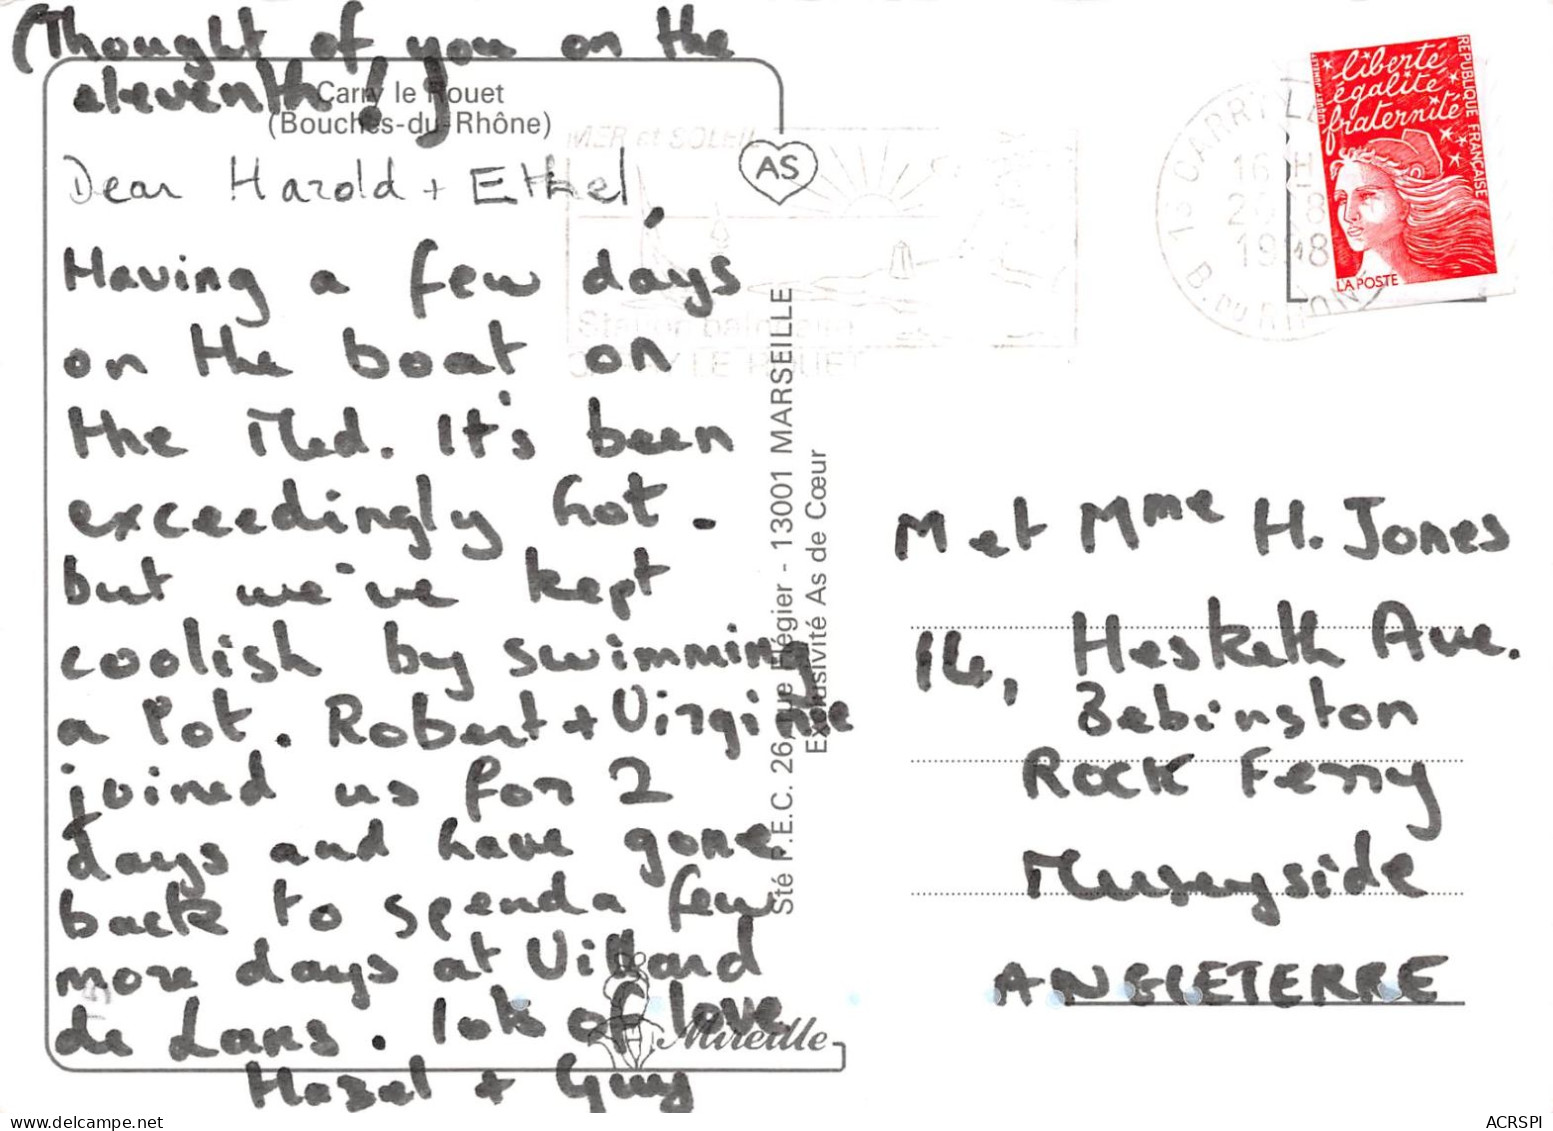 (Thought of you on the
eleventh!)
Carry le Rouet
(Bouches-du-Rhône)
Dear Harold + Ethel,
Having a few days
on the boat on
the Med. It's been
exceedingly hot -
but we've kept
coolish by swimming
a lot. Robert + Virginie
joined us for 2
days and have gone
back to spend a few
more days at Villard
de Lans. lots of love
Hazel + Guy
AS
Mireille
Sté P.E.C. 26, rue Flégier - 13001 MARSEILLE
Exclusivité As de Cœur
MER et SOLEIL
Station balnéaire
CARRY LE ROUET
13 CARRY LE
16 H
1998
B. DU RHONE
liberté
égalité
fraternité
REPUBLIQUE FRANÇAISE
LA POSTE
M et Mme H. Jones
14, Hesketh Ave.
Bebington
Rock Ferry
Merseyside
ANGLETERRE
ACRSPI